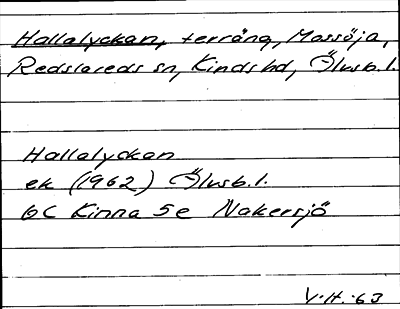 Hallalyckan, terräng, Mossöja,
Redslareds sn, Kinds hd, Älvsb. l.
Hallalyckan
ek (1962) Älvsb. l.
6C Kinna 5e Nakersjö
V.H. 63